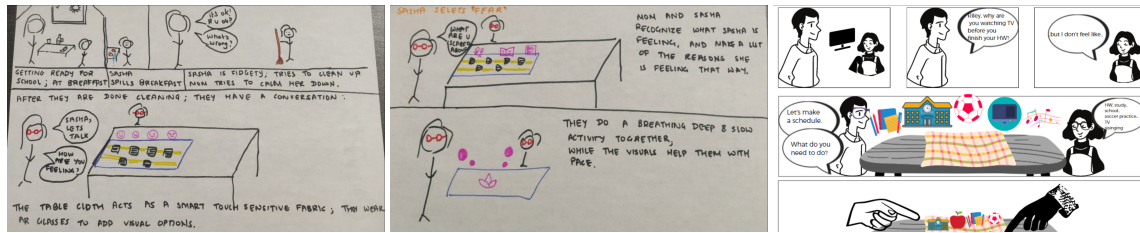 ITS OK!
R U OK?
WHAT'S
WRONG?
GETTING READY FOR
SCHOOL; AT BREAKFAST
SASHA
SPILLS BREAKFAST
SASHA IS FIDGETY, TRIES TO CLEAN UP
MOM TRIES TO CALM HER DOWN.
AFTER THEY ARE DONE CLEANING; THEY HAVE A CONVERSATION:
SASHA,
LETS
TALK
HOW
ARE YOU
FEELING?
THE TABLE CLOTH ACTS AS A SMART TOUCH SENSITIVE FABRIC; THEY WEAR
AR GLASSES TO ADD VISUAL OPTIONS.
SASHA SELECTS
WHAT
ARE U
SCARED
ABOUT?
MOM AND SASHA
RECOGNIZE WHAT SASHA IS
FEELING, AND MAKE A LIST
OF THE REASONS SHE
IS FEELING THAT WAY.
THEY DO A BREATHING DEEP & SLOW
ACTIVITY TOGHETHER,
WHILE THE VISUALS HELP THEM WITH
PACE.
Hey, why are
you watching TV
before you
finish your HW?
but I don't feel like..
Let's make
a schedule.
What do you
need to do?
HW, study,
school,
soccer practice..
TV
singing